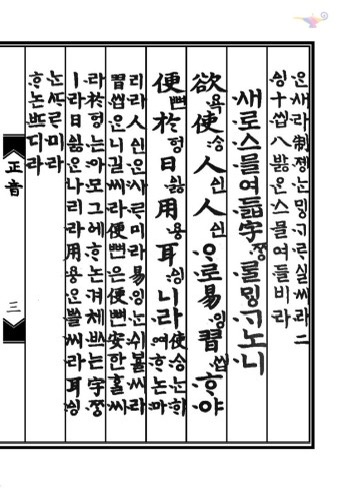 은새라制졩ᄂᆞᆫᄆᆡᇰᄀᆞᄅᆞ실씨라二
ᅀᅵᆼ十씹八바ᇙ은스믈여들비라
새로스믈여듧字ᄍᆞᆼᄅᆞᆯᄆᆡᇰᄀᆞ노니
欲욕使ᄉᆞᆼ人ᅀᅵᆫ人ᅀᅵᆫᄋᆞ로易잉習씹ᄒᆞ야
便뼌於ᅙᅥᆼ日ᅀᅵᇙ用용耳ᅀᅵᆼ니라
使ᄉᆞᆼᄂᆞᆫᄒᆡ
ᅇᅧᄒᆞ논마
리라人ᅀᅵᆫᄋᆞᆫ사ᄅᆞ미라易잉ᄂᆞᆫ쉬ᄫᅳᆯ씨라
習씹은니길씨라便뼌은便뼌安한ᄒᆞᆯ씨
라於ᅙᅥᆼ는아모그에ᄒᆞ논겨체ᄡᅳ는字ᄍᆞᆼ
ㅣ라日ᅀᅵᇙ은나리라用용은ᄡᅳᆯ씨라耳ᅀᅵᆼ
ᄂᆞᆫᄯᆞᄅᆞ미라
ᄒᆞ논ᄠᅳ디라
正音
三